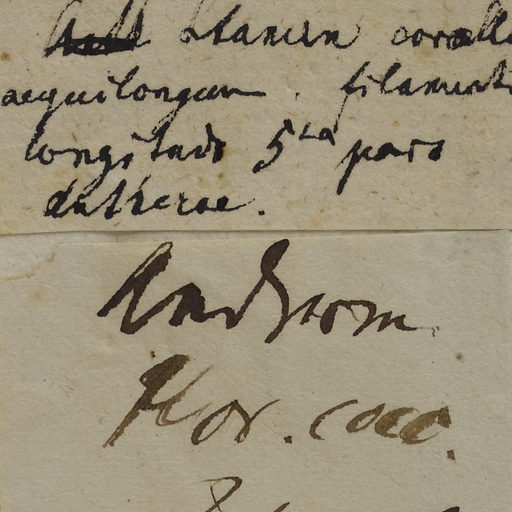 Stamen corolla
aequilongum. filamenti
longitudo 5ta pars
antherae.
Androm
Flor. cocc.